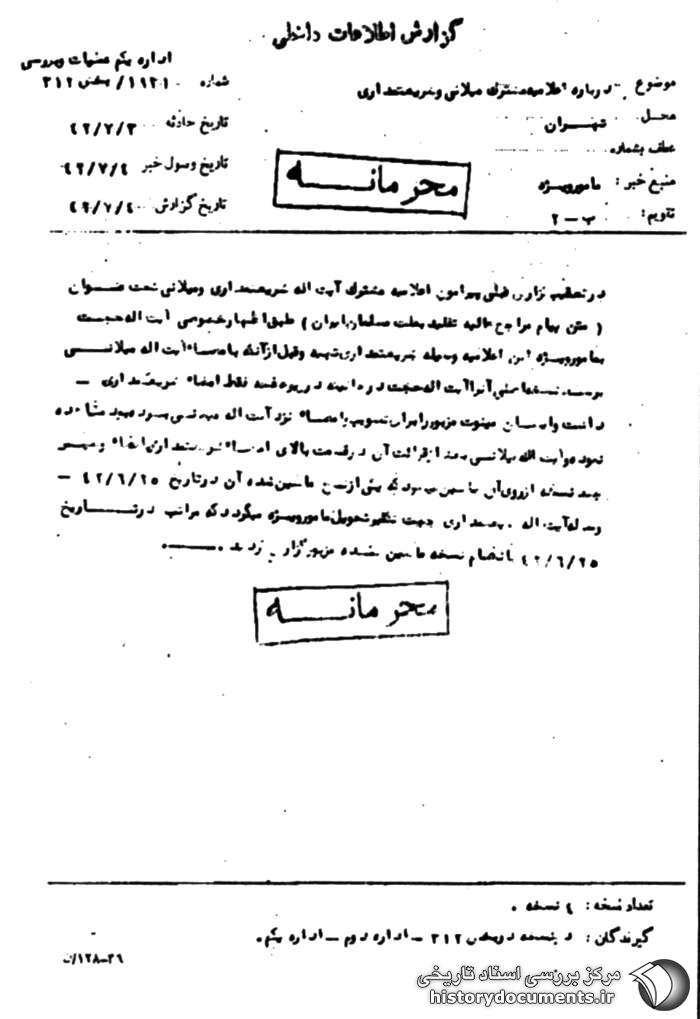 گزارش اطلاعات داخلی
اداره یکم عملیات و بررسی
شماره ۱۹۲۱۰ / بخش ۳۱۲
موضوع درباره اعلامیه مشترک میلانی و شریعتمداری
محل تهران
تاریخ حادثه ۴۲/۷/۳
عطف بشماره
تاریخ وصول خبر ۴۲/۷/۴
منبع خبر : مامور ویژه
تاریخ گزارش ۴۲/۷/۴۰
تقویم: ب - ۲
محرمانه
در تعقیب گزارش قبلی پیرامون اعلامیه مشترک آیت اله شریعتمداری و میلانی تحت عنوان
( متن پیام مراجع عالیه تقلید بملت مسلمان ایران ) طبق اظهار خصوصی آیت اله حجت
بمامور ویژه این اعلامیه وسیله شریعتمداری تهیه و قبل از آنکه بامضاء آیت اله میلانی
برسد نسخه آنرا آیت اله حجت فقط امضاء شریعتمداری -
داشت مزبور را برای تصویب و امضاء نزد آیت اله
نموده و آیت الله میلانی بعد از قرائت آن در قسمت بالای امضاء شریعتمداری امضاء و مهر
چند نسخه از روی آن ماشین میشود که یکی از نسخ ماشین شده آن در تاریخ ۴۲/۶/۲۵ -
وسیله آیت اله شریعتمداری جهت تحویل مامور ویژه میگردد که مراتب در تاریخ
۴۲/۶/۲۵ بانضمام نسخه ماشین شده مزبور گزارش گردید .
محرمانه
تعداد نسخه : ۴ نسخه .
گیرندگان : در بخش ۳۱۲ - اداره دوم - اداره یکم .
۳۶-۱۲۸/ن
مرکز بررسی اسناد تاریخی
historydocuments.ir